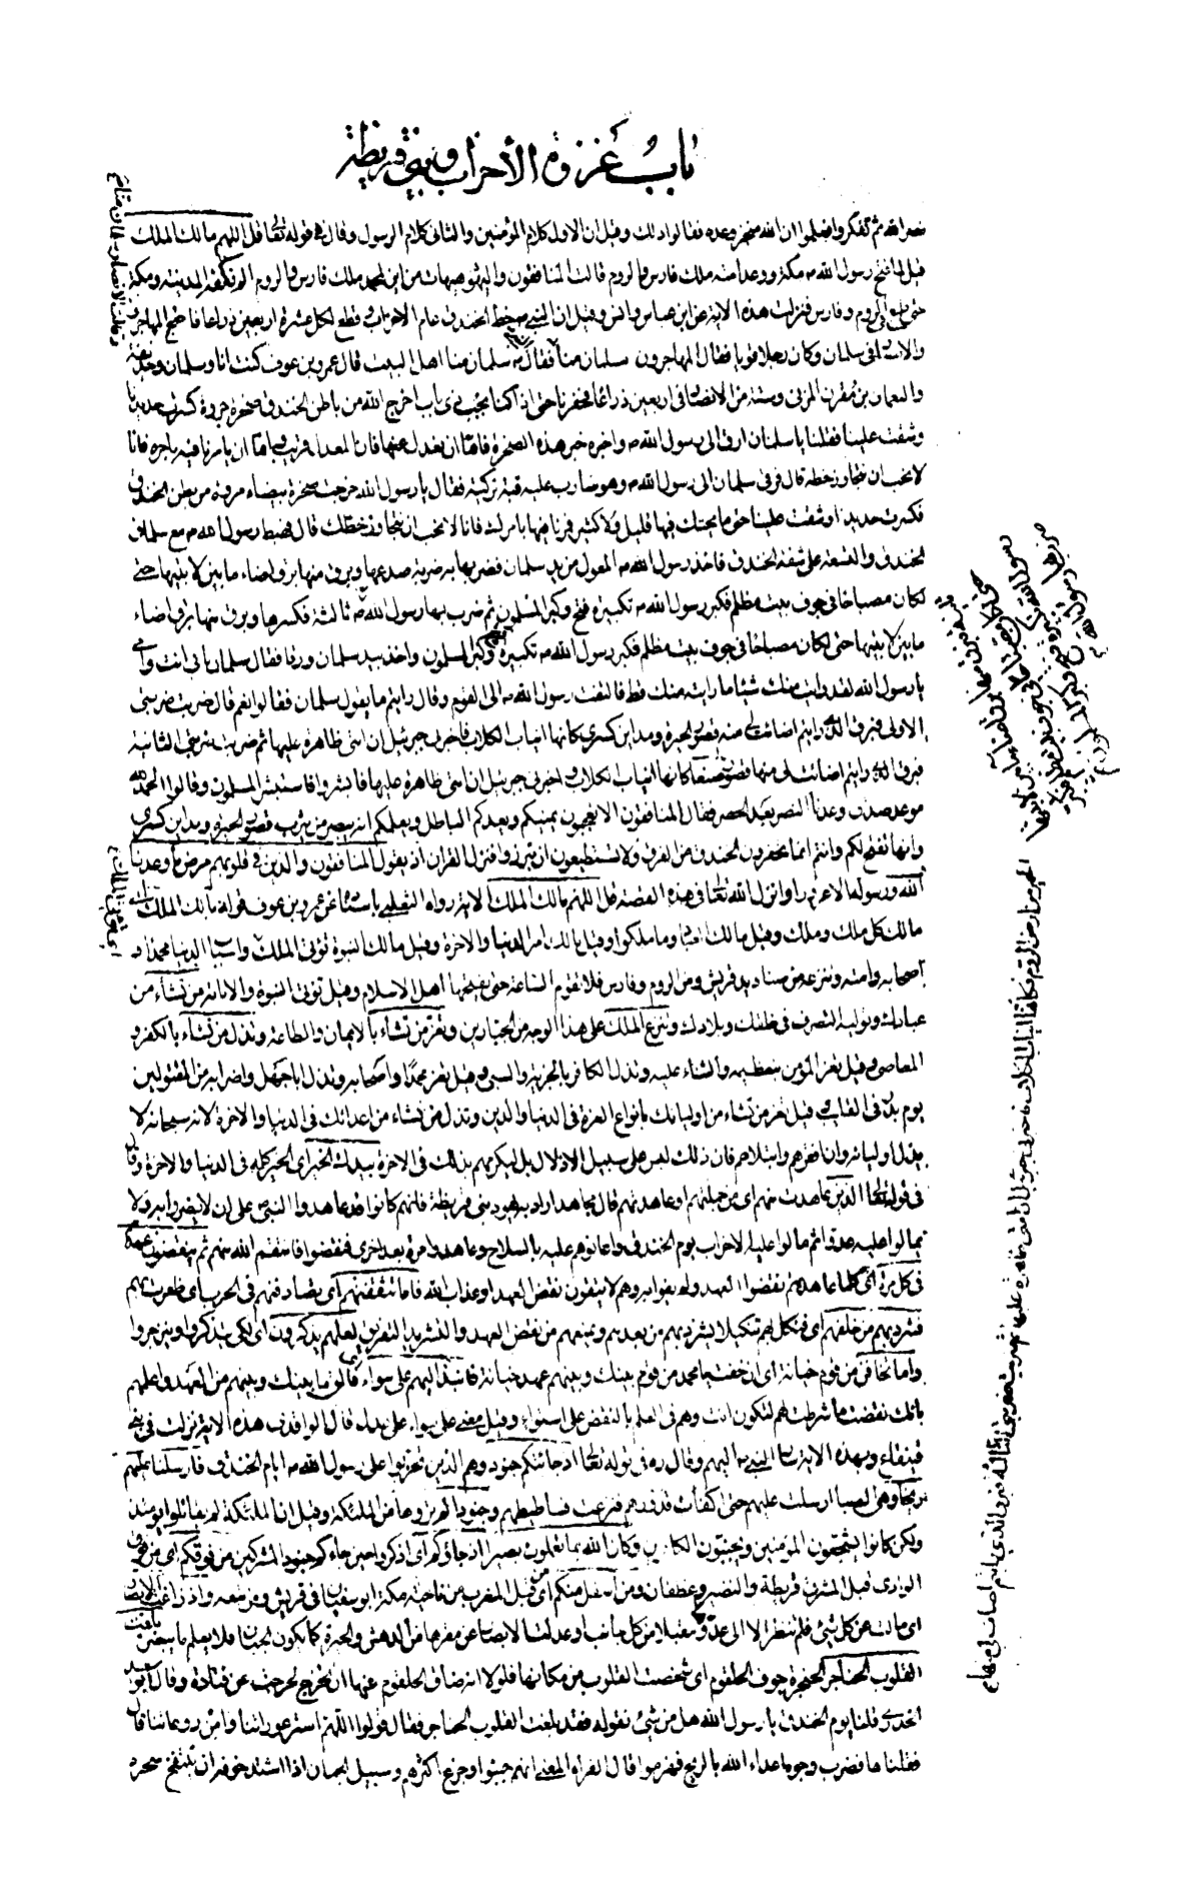 باب غزوة الأحزاب وبني قريظة
نصر الله ثم تفكروا فعلموا ان الله منجز وعده فقالوا ذلك وقيل ان الاول كلام المؤمنين والثاني كلام الرسول وقال في قوله تعالى قل اللهم مالك الملك
قيل لما فتح رسول الله ص مكة ووعد امته ملك فارس والروم قالت المنافقون واليهود هيهات من اين لمحمد ملك فارس والروم الم تكفه المدينة ومكة
حتى طمع في الروم وفارس فنزلت هذه الاية عن ابن عباس وانس وقيل ان النبي ص خط الخندق عام الاحزاب وقطع لكل عشرة اربعين ذراعا فاحتج المهاجرون
والانصار في سلمان وكان رجلا قويا فقال المهاجرون سلمان منا فقال ص سلمان منا اهل البيت قال عمرو بن عوف كنت انا وسلمان وحذيفة
والنعمان بن مقرن المزني وستة من الانصار في اربعين ذراعا فحفرنا حتى اذا كنا بجب ذي باب اخرج الله من باطن الخندق صخرة مروة كسرت حديدنا
وشقت علينا فقلنا يا سلمان ارق الى رسول الله ص واخبره خبر هذه الصخرة فاما ان نعدل عنها فان المعدل قريب واما ان يامرنا فيه بامره فانا
لا نحب ان نتجاوز خطه قال فرقى سلمان الى رسول الله ص وهو ضارب عليه قبة تركية فقال يا رسول الله خرجت صخرة بيضاء مروة من بطن الخندق
فكسرت حديدنا وشقت علينا حتى ما يحتك فيها قليل ولا كثير فمرنا فيها بامرك فانا لا نحب ان نتجاوز خطك قال فهبط رسول الله ص مع سلمان
الخندق والتسعة على شفة الخندق فاخذ رسول الله ص المعول من يد سلمان فضربها به ضربة صدعها وبرق منها برق اضاء ما بين لابتيها حتى
لكان مصباحا في جوف بيت مظلم فكبر رسول الله ص تكبيرة فتح وكبر المسلمون ثم ضرب بها رسول الله ص ثالثة فكسرها وبرق منها برق اضاء
ما بين لابتيها حتى لكان مصباحا في جوف بيت مظلم فكبر رسول الله ص تكبيرة فتح وكبر المسلمون واخذ بيد سلمان ورقا فقال سلمان بابي انت وامي
يا رسول الله لقد رايت منك شيئا ما رايته منك قط فالتفت رسول الله ص الى القوم وقال رايتم ما يقول سلمان فقالوا نعم قال ضربت ضربتي
الاولى فبرق الذي رايتم اضاءت لي منه قصور الحيرة ومداين كسرى كانها انياب الكلاب فاخبرني جبرئيل ان امتي ظاهرة عليها ثم ضربت ضربتي الثانية
فبرق الذي رايتم اضاءت لي منها قصور صنعا كانها انياب الكلاب واخبرني جبرئيل ان امتي ظاهرة عليها فابشروا فاستبشر المسلمون وقالوا الحمد لله
موعد صدق وعدنا النصر بعد الحصر فقال المنافقون الا تعجبون يمنيكم ويعدكم الباطل ويعلمكم انه يبصر من يثرب قصور الحيرة ومداين كسرى
وانها تفتح لكم وانتم انما تحفرون الخندق من الفرق ولا تستطيعون ان تبرزوا فنزل القران اذ يقول المنافقون والذين في قلوبهم مرض ما وعدنا
الله ورسوله الا غرورا وانزل الله تعالى في هذه القصة قل اللهم مالك الملك الاية رواه الثعلبي باسناده عن عمرو بن عوف قوله مالك الملك
مالك كل ملك وملك وقيل مالك العباد وما ملكوا وقيل مالك امر الدنيا والاخرة وقيل مالك النبوة تؤتي الملك واسباب الدنيا محمدا و
اصحابه وامته وتنزعه من صناديد قريش ومن الروم وفارس فلا تقوم الساعة حتى يفتحها اهل الاسلام وقيل تؤتي النبوة والامامة من تشاء من
عبادك وتوليه التصرف في خلقك وبلادك وتنزع الملك على هذا الوجه من الجبارين وتعز من تشاء بالايمان والطاعة وتذل من تشاء بالكفر و
المعاصي وقيل تعز المؤمن بتعظيمه والثناء عليه وتذل الكافر بالجزية والسبي وقيل تعز محمدا واصحابه وتذل ابا جهل واضرابه من المقتولين
يوم بدر في القليب وقيل تعز من تشاء من اوليائك بانواع العزة في الدنيا والدين وتذل من تشاء من اعدائك في الدنيا والاخرة لانه سبحانه لا
يذل اولياءه وان افقرهم وابتلاهم فان ذلك ليس على سبيل الاذلال بل ليكرمهم بذلك في الاخرة بيدك الخير اي الخير كله في الدنيا والاخرة وقال
في قوله تعالى الذين عاهدت منهم اي من جملتهم او عاهدتهم قال مجاهد اراد به يهود بني قريظة فانهم كانوا قد عاهدوا النبي ص على ان لا يضروا به ولا
يمالوا عليه عدوا ثم مالوا عليه الاحزاب يوم الخندق واعانوهم عليه بالسلاح وعاهدوا مرة بعد اخرى فنقضوا فانتقم الله منهم ثم ينقضون عهدهم
في كل مرة اي كلما عاهدتهم نقضوا العهد ولم يفوا به وهم لا يتقون نقض العهد او عذاب الله فاما تثقفنهم اي تصادفنهم في الحرب اي ظفرت بهم
فشرد بهم من خلفهم اي فنكل بهم تنكيلا يشرد بهم من بعدهم ويمنعهم من نقض العهد والتشريد التفريق لعلهم يذكرون اي لكي يتذكروا وينزجروا
واما تخافن من قوم خيانة اي ان خفت يا محمد من قوم بينك وبينهم عهد خيانة فانبذ اليهم على سواء اي فالق ما بينك وبينهم من العهد واعلمهم
بانك نقضت ما شرطت لهم لتكون انت وهم في العلم بالنقض على استواء وقيل معنى على سواء على عدل قال الواقدي هذه الاية نزلت في بني
قينقاع وبهذه الاية سار النبي ص اليهم وقال ره في قوله تعالى اذ جاءتكم جنود وهم الذين تحزبوا على رسول الله ص ايام الخندق فارسلنا عليهم
ريحا وهي الصبا ارسلت عليهم حتى اكفات قدورهم ونزعت فساطيطهم وجنودا لم تروها من الملائكة وقيل ان الملائكة لم يقاتلوا يومئذ
ولكن كانوا يشجعون المؤمنين ويجبنون الكافرين وكان الله بما تعملون بصيرا اذ جاؤكم اي اذكروا حين جاءكم جنود المشركين من فوقكم اي من فوق
الوادي قبل المشرق قريظة والنضير وغطفان ومن اسفل منكم اي من قبل المغرب من ناحية مكة ابو سفيان في قريش ومن تبعه واذ زاغت الابصار
اي مالت عن كل شيء فلم تنظر الا الى عدوها مقبلا من كل جانب او عدلت الابصار عن مقرها من الدهش والحيرة كما يكون الجبان فلا يعلم ما يبصر وبلغت
القلوب الحناجر الحنجرة جوف الحلقوم اي شخصت القلوب من مكانها فلولا انه ضاق الحلقوم عنها ان تخرج لخرجت عن قتادة وقال ابو سعيد
الخدري قلنا يوم الخندق يا رسول الله هل من شيء نقوله فقد بلغت القلوب الحناجر فقال قولوا اللهم استر عوراتنا وامن روعاتنا قال
فقلناها فضرب وجوه اعداء الله بالريح فهزموا قال الفراء المعنى انهم جبنوا وجزع اكثرهم وسبيل الجبان اذا اشتد خوفه ان تنتفخ سحره
وقالت الانصار سلمان منا
الحمر من ارض الروم فكانها انياب الكلاب فاخبرني جبرئيل ان امتي ظاهرة عليها ثم ضربت ضربتي الثالثة فبرق الذي رايتم اضاءت لي منها